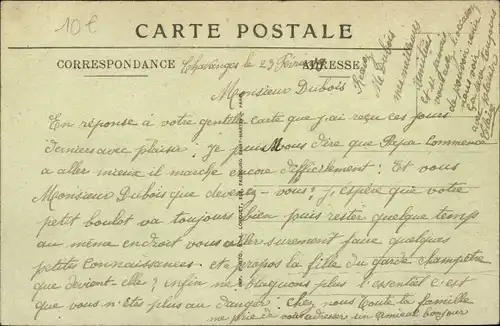 10€
CARTE POSTALE
CORRESPONDANCE
ADRESSE
Chavanges le 23 Février
Monsieur Dubois
En réponse à votre gentille carte que j'ai reçu ces jours
derniers avec plaisir. je puis Vous dire que Papa commence
a aller mieux il marche encore difficilement. Et vous
Monsieur Dubois que devenez-vous? j'espère que votre
petit boulot va toujours bien puis rester quelque temps
au même endroit vous aller surement faire quelques
petites connaissances. et a propos la fille du garde champêtre
que devient-elle? enfin ne blaguons plus l'essentiel c'est
que vous n'êtes plus au danger. Chez nous toute la famille
me prie de vous adresser un amical bonjour
Recevez
Mr Dubois
mes meilleures
amitiés
et si jamais
vous avez l'occasion
de pouvoir venir
nous voir
avec plaisir